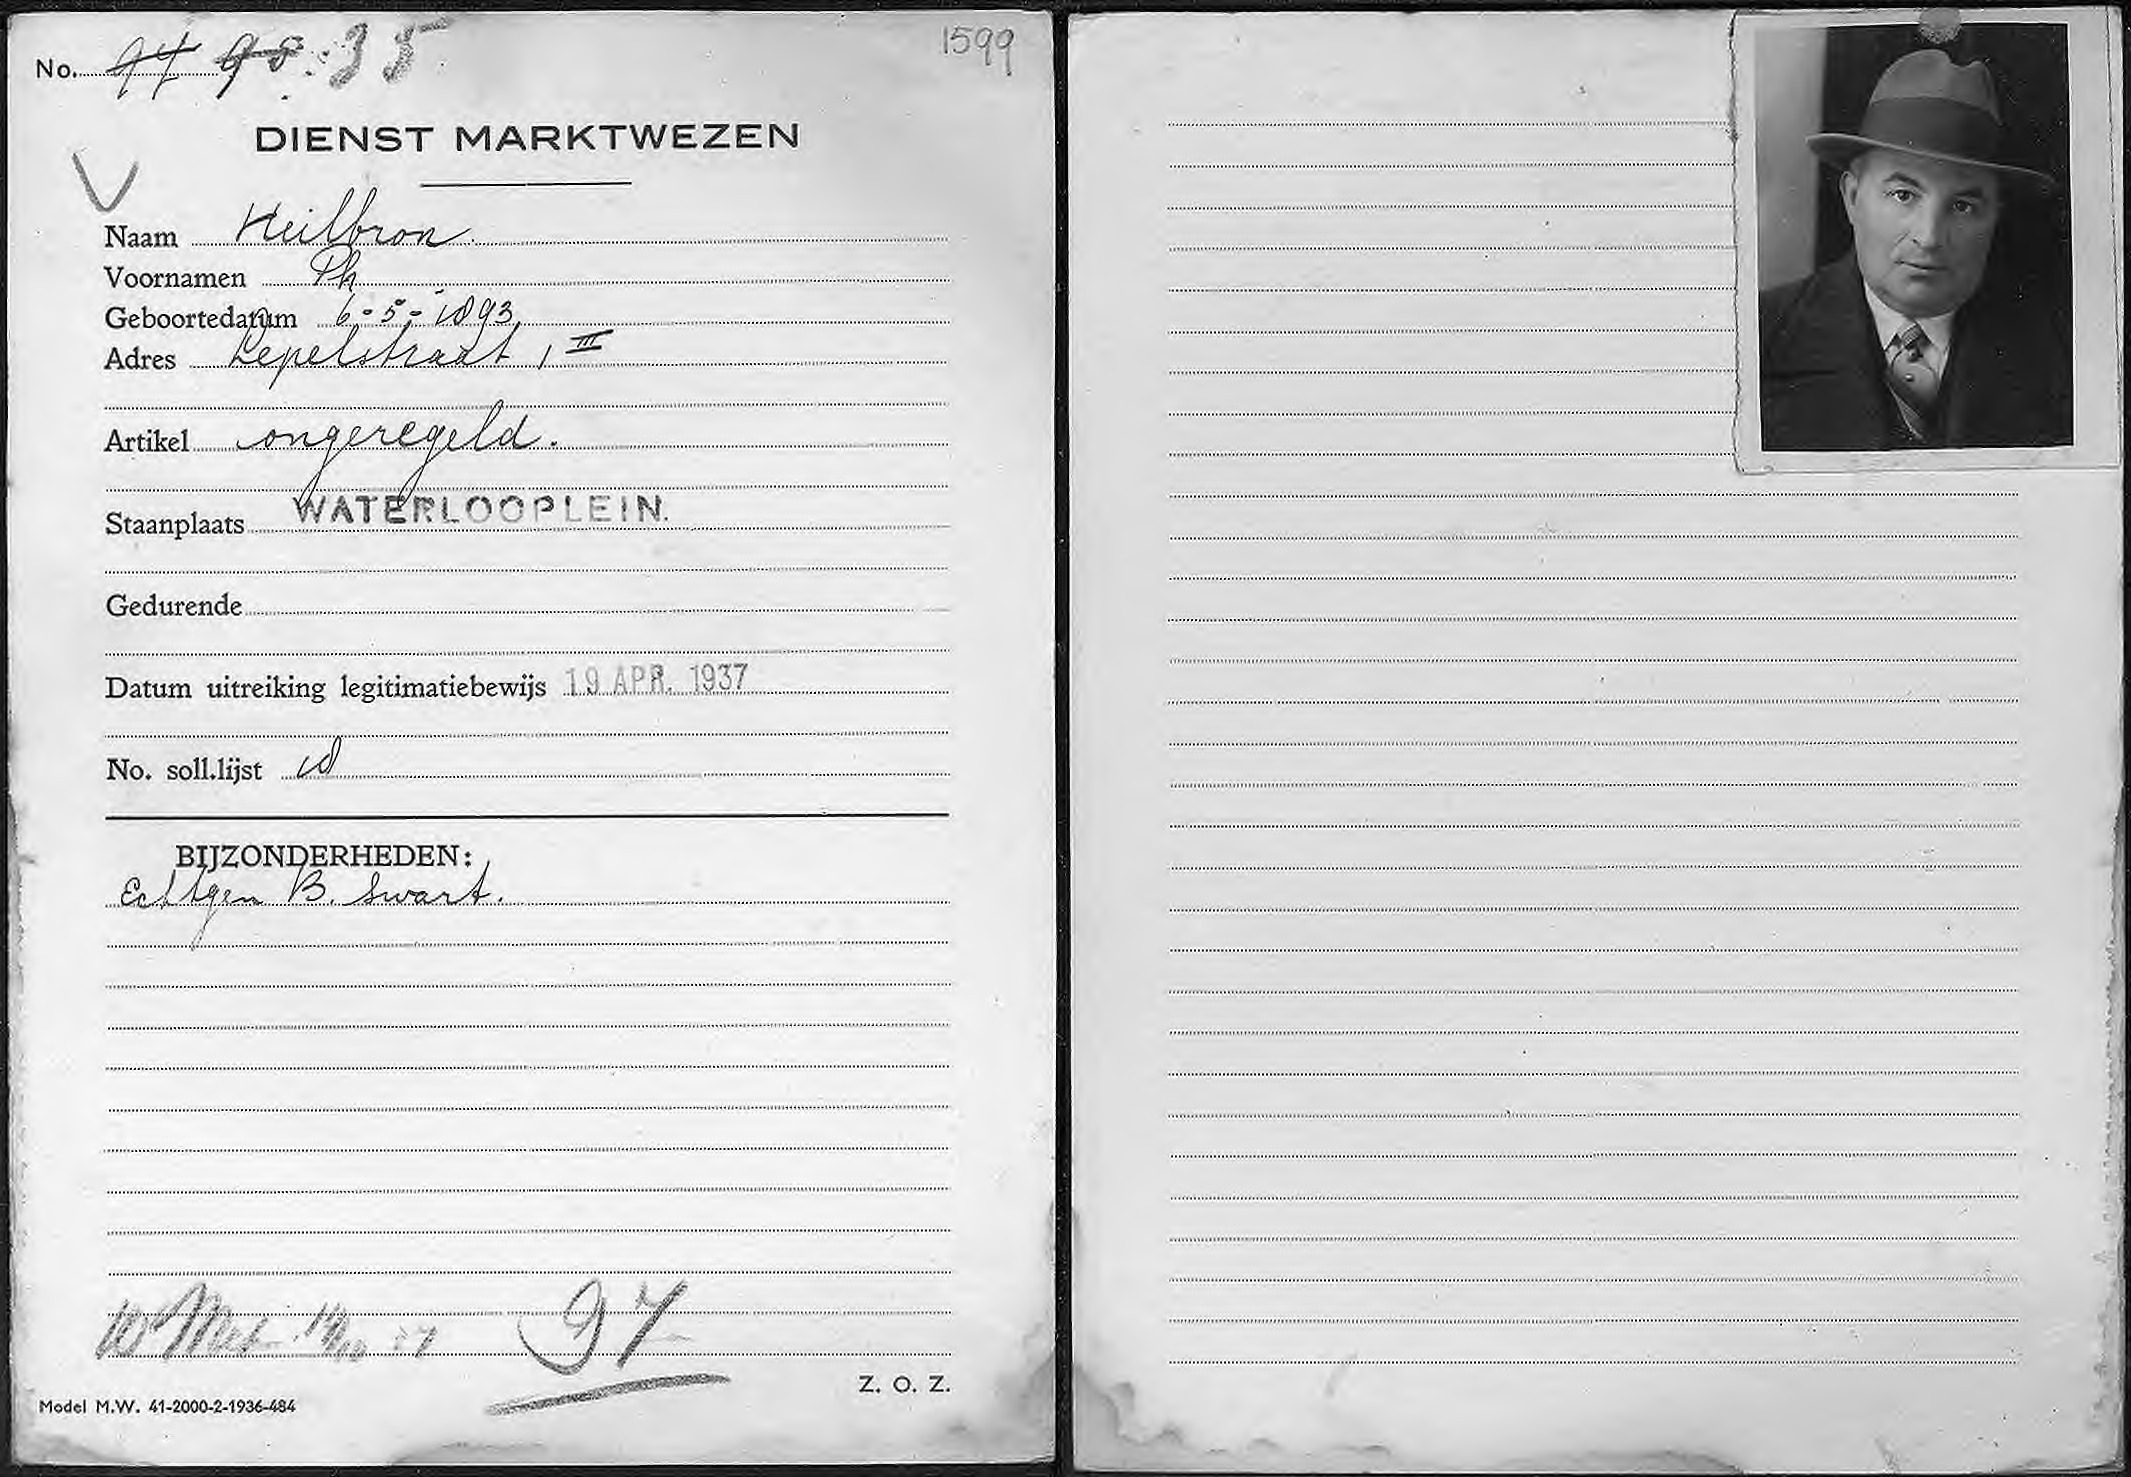 No. 97 98: 35
1599
DIENST MARKTWEZEN
V
Naam Heilbron.
Voornamen Ph
Geboortedatum 6-5-1893
Adres Lepelstraat 1 III
Artikel ongeregeld.
Staanplaats WATERLOOPLEIN.
Gedurende
Datum uitreiking legitimatiebewijs 19 APR. 1937
No. soll.lijst
BIJZONDERHEDEN:
Echtgen B. Swart.
97
Z. O. Z.
Model M.W. 41-2000-2-1936-484